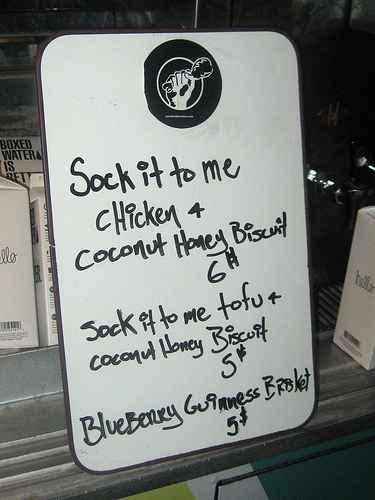 Sock it to me
CHicken &
Coconut Honey Biscuit
6#
Sock it to me tofu &
coconut Honey Biscuit
5#
BlueBerry Guinness Brisket
5#
BOXED
WATER
IS
BETT
hello